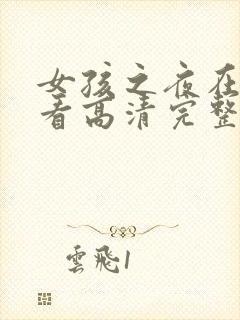 女孩之夜在
看高清完整
雲飛1